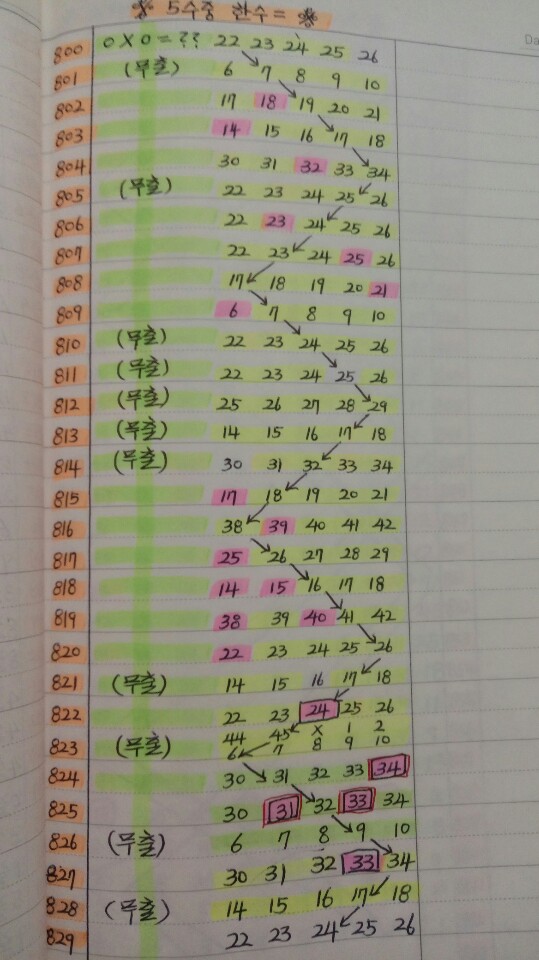 ※ 5수중 한수 = ※
Da
800 0 X 0 = ?? 22 23 24 25 26
801 (무출) 6 7 8 9 10
802 17 18 19 20 21
803 14 15 16 17 18
804 30 31 32 33 34
805 (무출) 22 23 24 25 26
806 22 23 24 25 26
807 22 23 24 25 26
808 17 18 19 20 21
809 6 7 8 9 10
810 (무출) 22 23 24 25 26
811 (무출) 22 23 24 25 26
812 (무출) 25 26 27 28 29
813 (무출) 14 15 16 17 18
814 (무출) 30 31 32 33 34
815 17 18 19 20 21
816 38 39 40 41 42
817 25 26 27 28 29
818 14 15 16 17 18
819 38 39 40 41 42
820 22 23 24 25 26
821 (무출) 14 15 16 17 18
822 22 23 24 25 26
44 45 X 1 2
823 (무출) 6 7 8 9 10
824 30 31 32 33 34
825 30 31 32 33 34
826 (무출) 6 7 8 9 10
827 30 31 32 33 34
828 (무출) 14 15 16 17 18
829 22 23 24 25 26